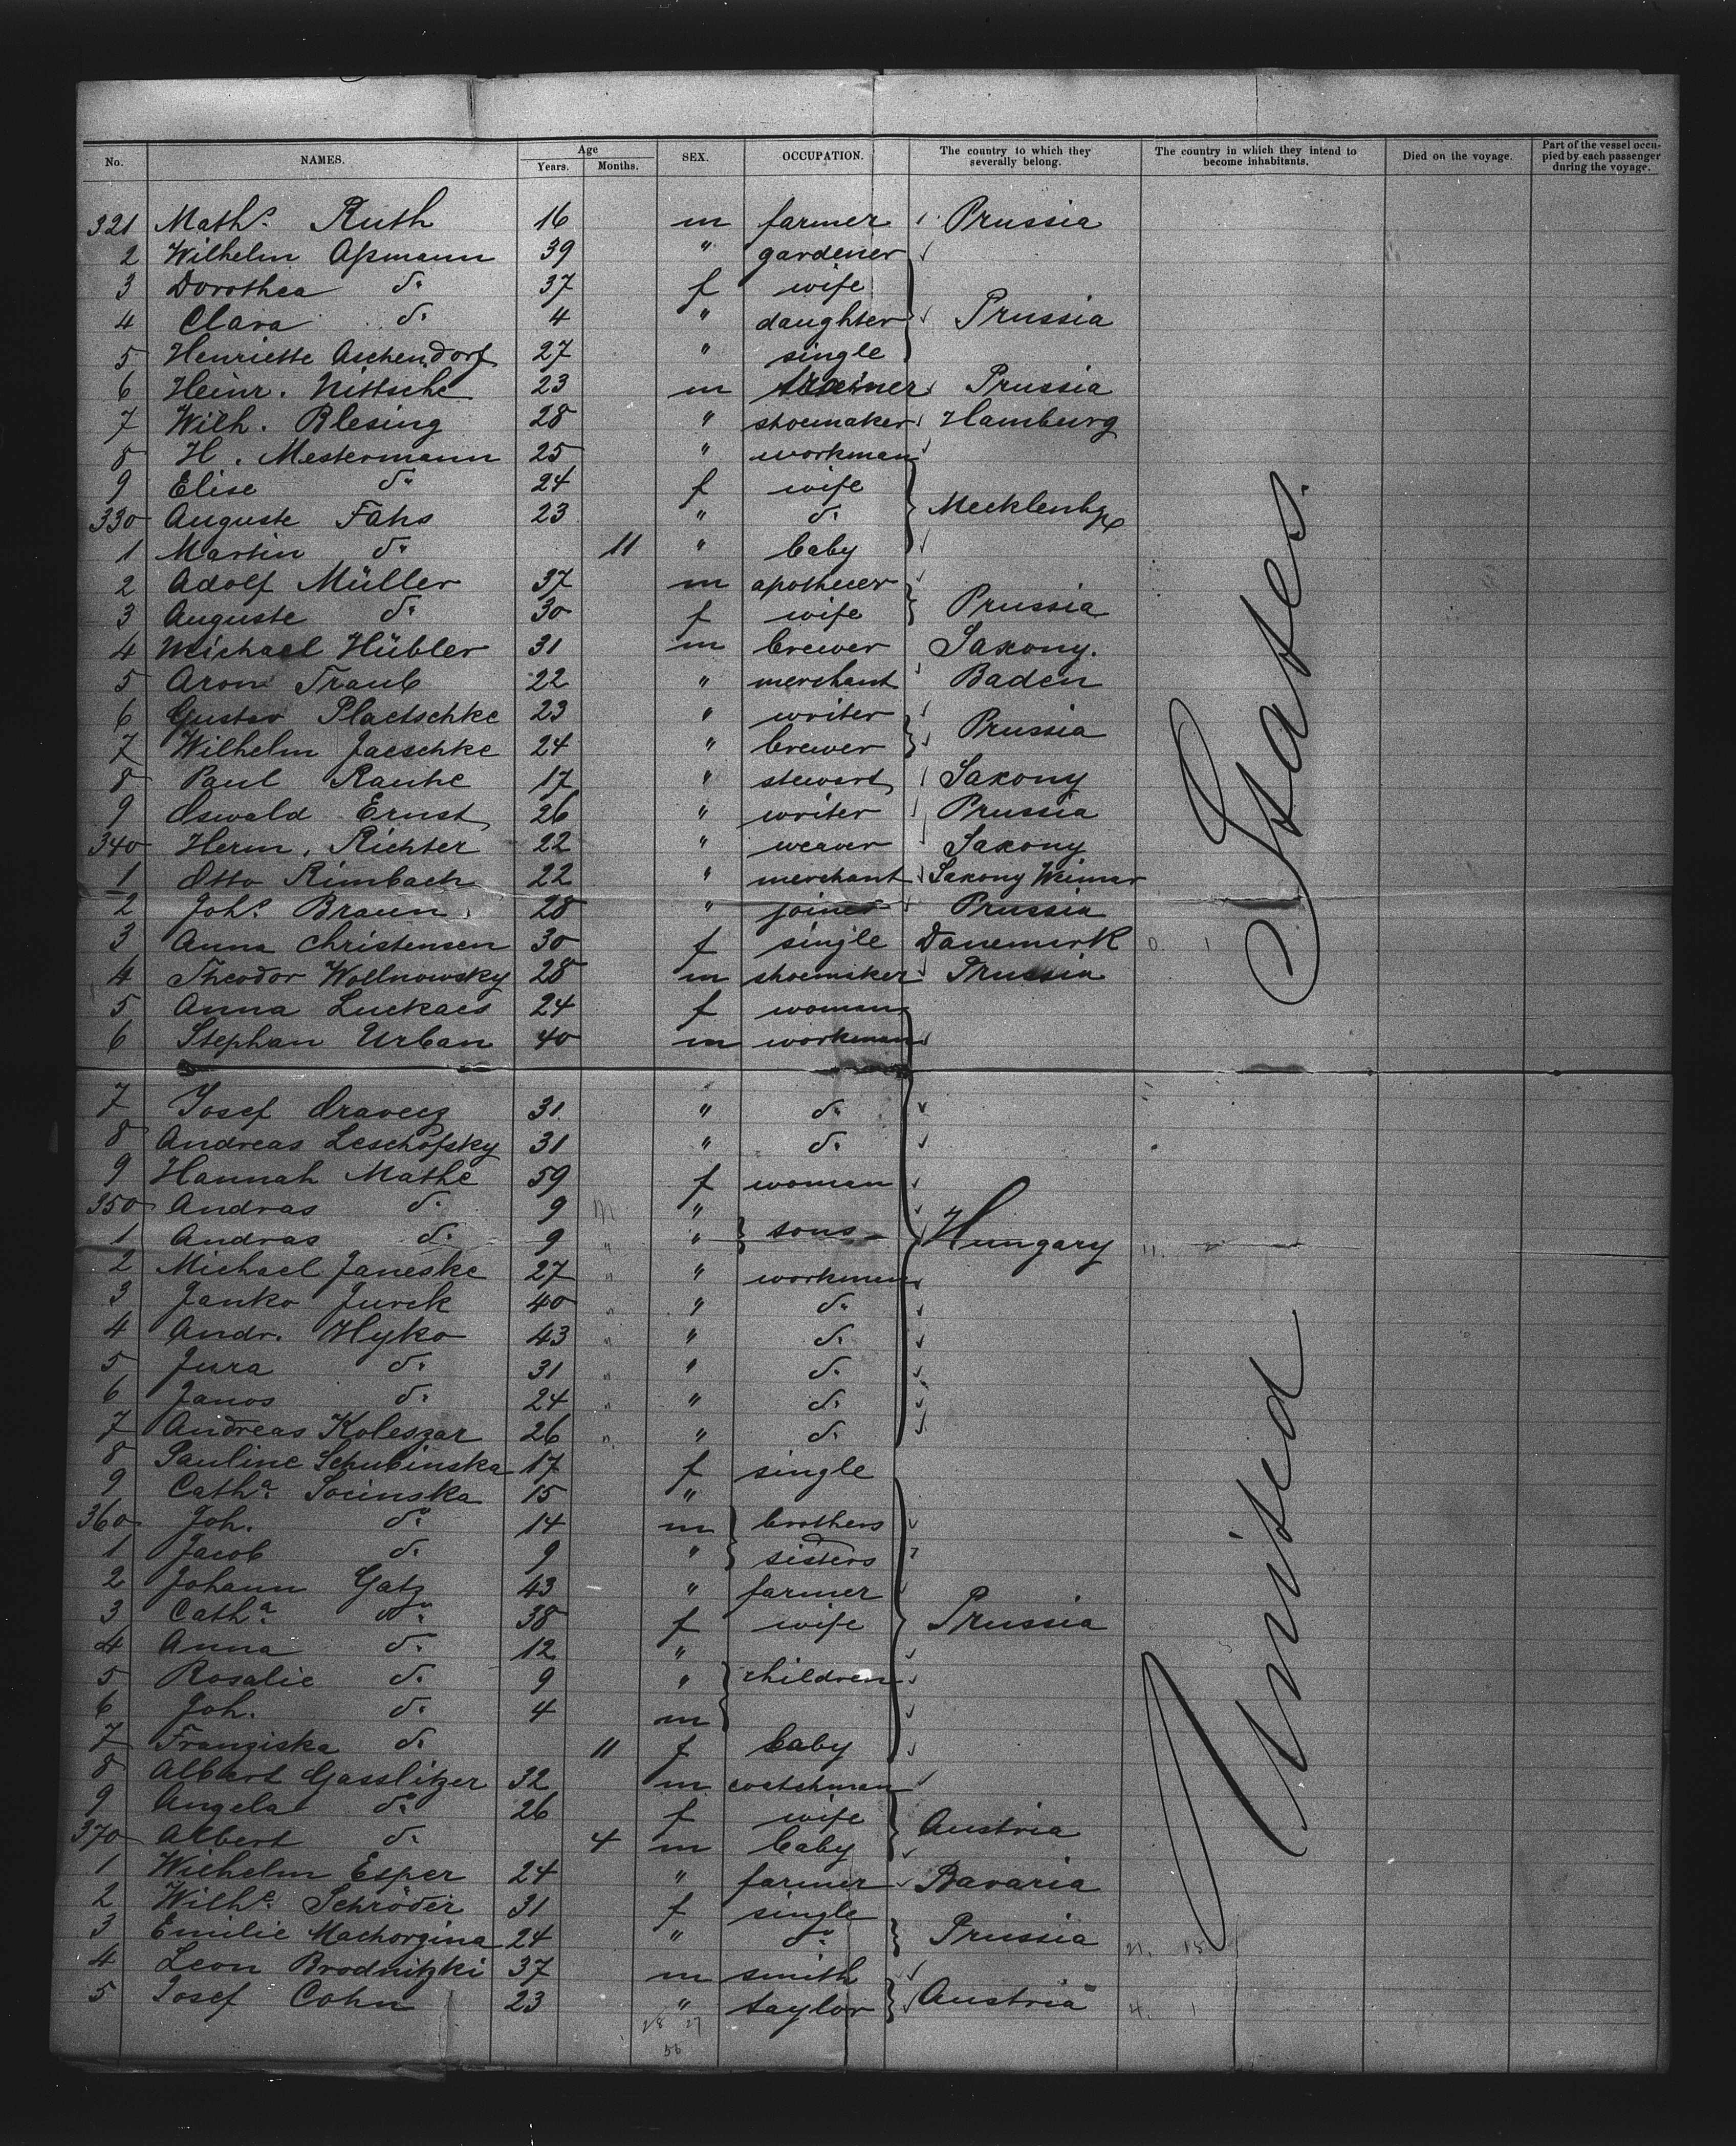 No. NAMES. Age Years. Months. SEX. OCCUPATION. The country to which they severally belong. The country in which they intend to become inhabitants. Died on the voyage. Part of the vessel occupied by each passenger during the voyage.
321 Maths. Ruth 16 m farmer Prussia
2 Wilhelm Aßmann 39 " gardener
3 Dorothea do. 37 f wife
4 Clara do. 4 " daughter Prussia
5 Henriette Aschendorf 27 " single
6 Heinr. Nittsche 23 m Prussia
7 Wilh. Blesing 28 " shoemaker Hamburg
8 H. Mestermann 25 " workman
9 Elise do. 24 f wife
330 Auguste Fahs 23 " do. Mecklenbg
1 Martin do. 11 " baby
2 Adolf Müller 37 m apothecer
3 Auguste do. 30 f wife Prussia
4 Michael Hübler 31 m brewer Saxony.
5 Aron Traub 22 " merchant Baden
6 Gustav Plaetschke 23 " writer
7 Wilhelm Jaeschke 24 " brewer Prussia
8 Paul Rauhe 17 " stewart Saxony
9 Oswald Ernst 26 " writer Prussia
340 Herm. Richter 22 " weaver Saxony
1 Otto Rimbach 22 " merchant Saxony Weimar
2 Johs. Braun 28 " joiner Prussia
3 Anna Christensen 30 f single Danemark
4 Theodor Wollnowsky 28 m shoemaker Prussia
5 Anna Luckacs 24 f woman
6 Stephan Urban 40 m workman
7 Josef Oravecz 31 " do.
8 Andreas Leschofsky 31 " do.
9 Hannah Mathe 59 f woman
350 Andras do. 9 m "
1 Andras do. 9 " " sons Hungary
2 Michael Janeske 27 " " workmen
3 Janko Jurek 40 " " do.
4 Andr. Hyko 43 " " do.
5 Jura do. 31 " " do.
6 Janos do. 24 " " do.
7 Andreas Koleszar 26 " " do.
8 Pauline Schubinska 17 f single
9 Catha. Socinska 15 "
360 Joh. do. 14 m brothers
1 Jacob do. 9 " sisters
2 Johann Gatz 43 " farmer
3 Catha. do. 38 f wife Prussia
4 Anna do. 12 "
5 Rosalie do. 9 " children
6 Joh. do. 4 m
7 Franziska do. 11 f baby
8 Albert Gasslitzer 32 m coatchman
9 Angela do. 26 f wife Austria
370 Albert do. 4 m baby
1 Wilhelm Esper 24 " farmer Bavaria
2 Wilhe. Schröder 31 f single
3 Emilie Machorgina 24 " do. Prussia
4 Leon Brodnitzki 37 m smith
5 Josef Cohn 23 " taylor Austria
United States.
28 27